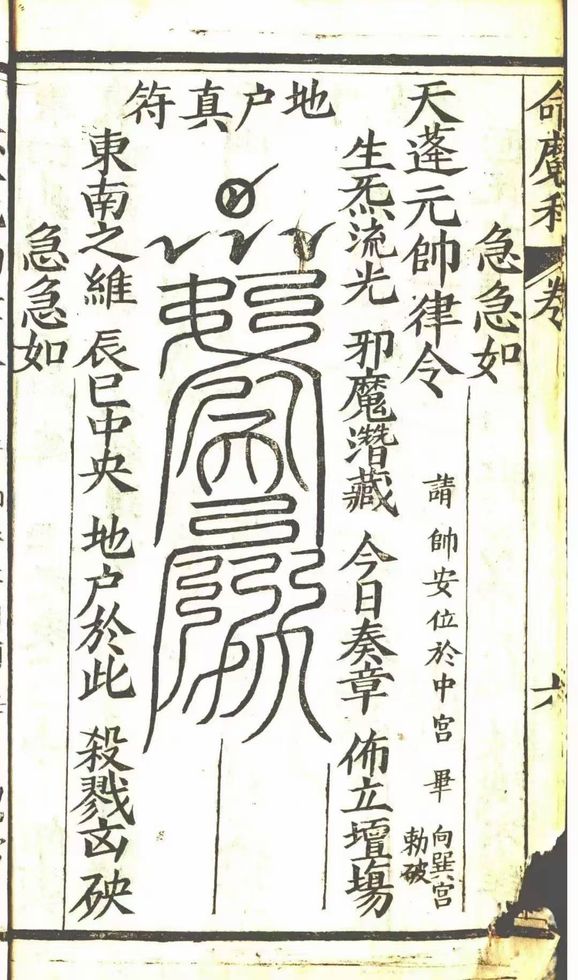 命魔科 卷 六
急急如
天蓬元帥律令 請帥安位於中宮 畢 向巽宮
勅破
生炁流光 邪魔潛藏 今日奏章 佈立壇場
地户真符
東南之維 辰巳中央 地户於此 殺戮㐫殃
急急如